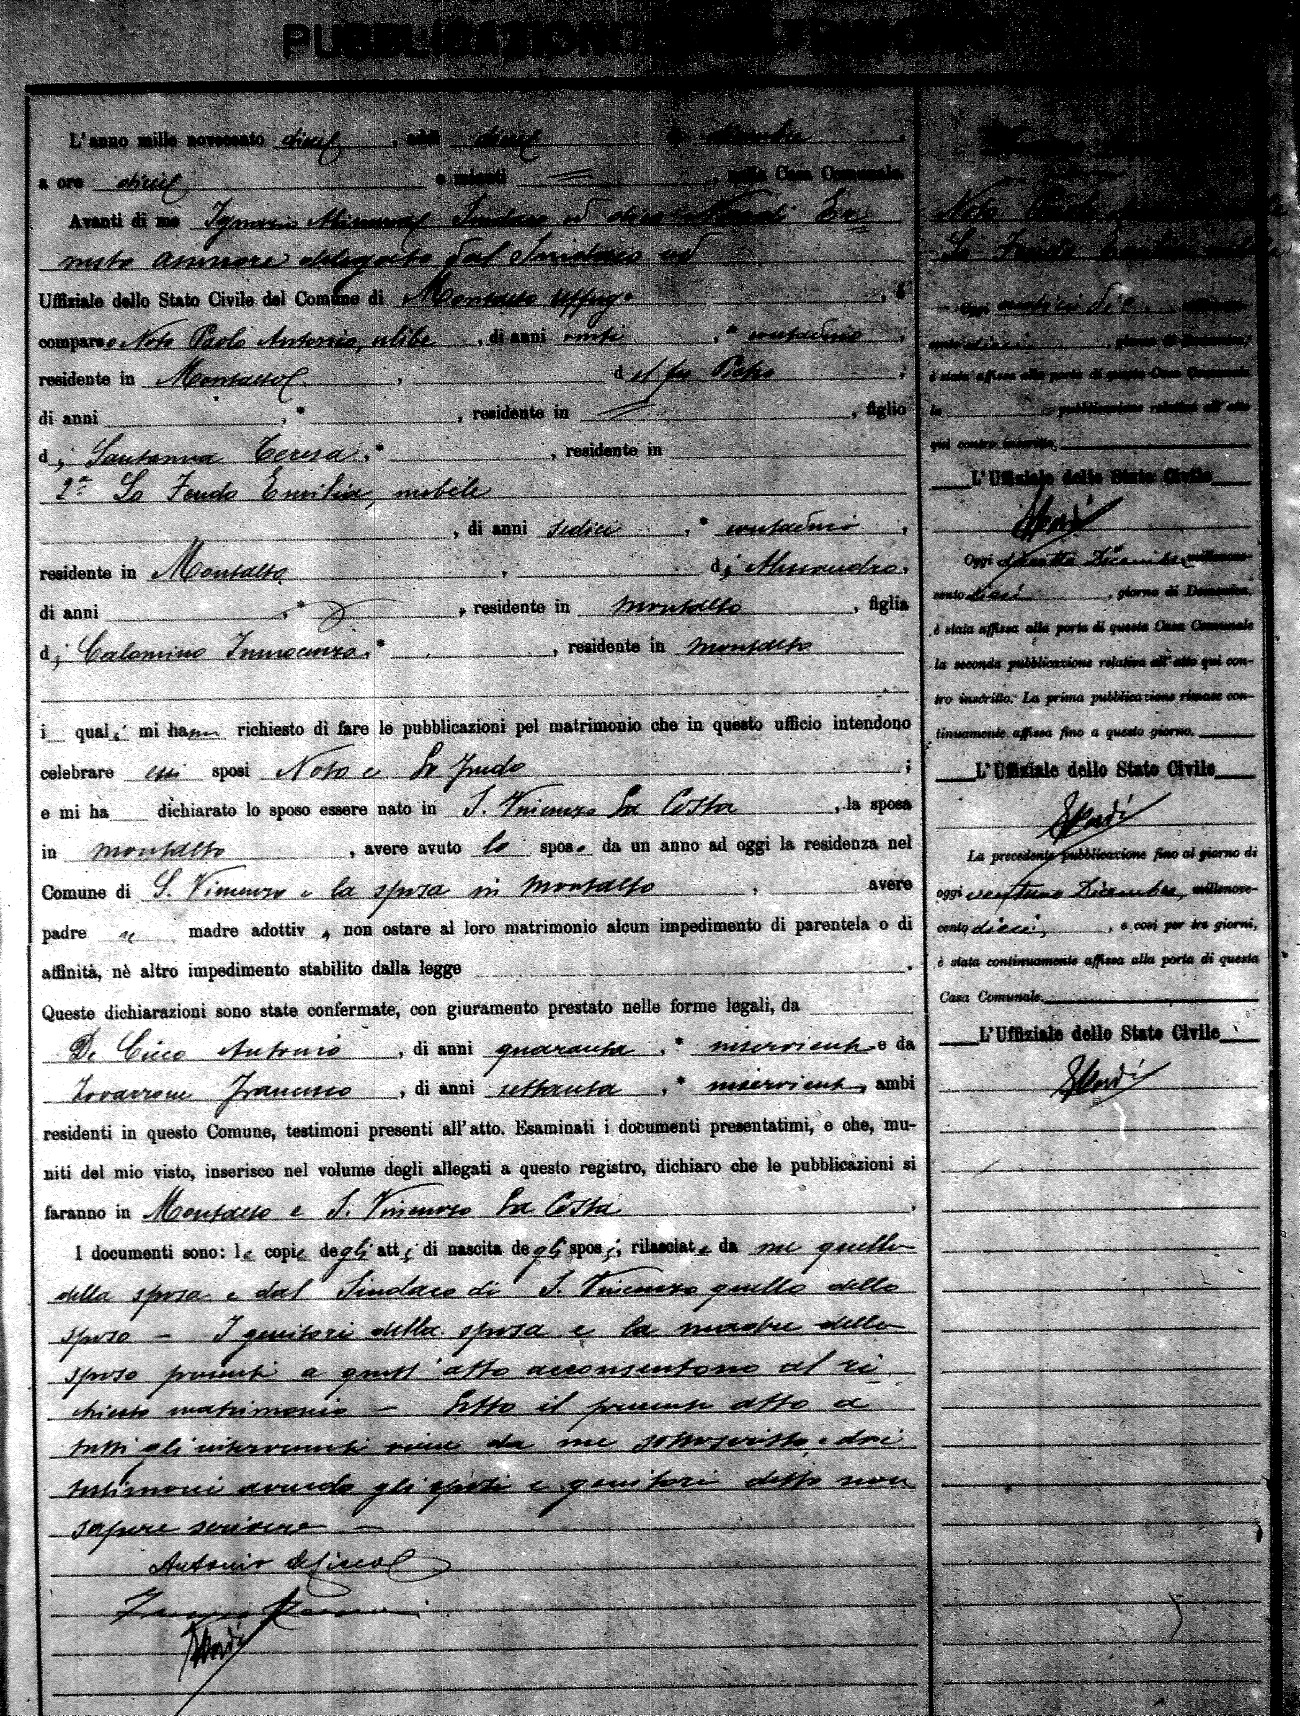 PUBBLICAZIONI
L'anno mille novecento dieci, addì dieci di dicembre,
a ore dieci e minuti =, nella Casa Comunale.
Avanti di me
assessore delegato dal Sindaco ed
Uffiziale dello Stato Civile del Comune di Montalto Uffugo,
compars Noto Paolo Antonio, celibe, di anni venti, * contadino,
residente in Montalto, del fu Pietro,
di anni , * , residente in , figlio
di Santanna Teresa, * , residente in
2° Lo Feudo Emilia, nubile
, di anni sedici, * contadina,
residente in Montalto, di Alessandro,
di anni , * , residente in Montalto, figlia
di Calomino Innocenza, * , residente in Montalto
i quali mi hanno richiesto di fare le pubblicazioni pel matrimonio che in questo ufficio intendono
celebrare essi sposi Noto e Lo Feudo ;
e mi ha dichiarato lo sposo essere nato in S. Vincenzo La Costa, la sposa
in Montalto, avere avuto lo sposo da un anno ad oggi la residenza nel
Comune di S. Vincenzo e la sposa in Montalto, avere
padre madre adottiv , non ostare al loro matrimonio alcun impedimento di parentela o di
affinità, nè altro impedimento stabilito dalla legge .
Queste dichiarazioni sono state confermate, con giuramento prestato nelle forme legali, da
De Cicco Antonio, di anni quaranta, * inserviente e da
Francesco, di anni settanta, * inserviente, ambi
residenti in questo Comune, testimoni presenti all'atto. Esaminati i documenti presentatimi, e che, mu-
niti del mio visto, inserisco nel volume degli allegati a questo registro, dichiaro che le pubblicazioni si
faranno in Montalto e S. Vincenzo La Costa.
I documenti sono: le copie degli atti di nascita degli sposi, rilasciate da me quello
della sposa e dal Sindaco di S. Vincenzo quello dello
sposo — I genitori della sposa e la madre dello
sposo presenti a quest'atto acconsentono al ri
chiesto matrimonio — Letto il presente atto a
tutti gli intervenuti viene da me sottoscritto e dai
testimoni avendo gli sposi e genitori detto non
sapere scrivere —
Antonio De Cicco
Noto Paolo
Lo Feudo Emilia
Oggi
cento dieci, giorno di Domenica,
è stata affissa alla porta di questa Casa Comunale
la pubblicazione relativa all'atto
qui contro inscritto.
L'Uffiziale dello Stato Civile
Oggi Dicembre millenove-
cento dieci, giorno di Domenica,
è stata affissa alla porta di questa Casa Comunale
la seconda pubblicazione relativa all'atto qui con-
tro inscritto. La prima pubblicazione rimase con-
tinuamente affissa fino a questo giorno.
L'Uffiziale dello Stato Civile
La precedente pubblicazione fino al giorno di
oggi ventuno Dicembre, millenove-
cento dieci, e così per tre giorni,
è stata continuamente affissa alla porta di questa
Casa Comunale.
L'Uffiziale dello Stato Civile